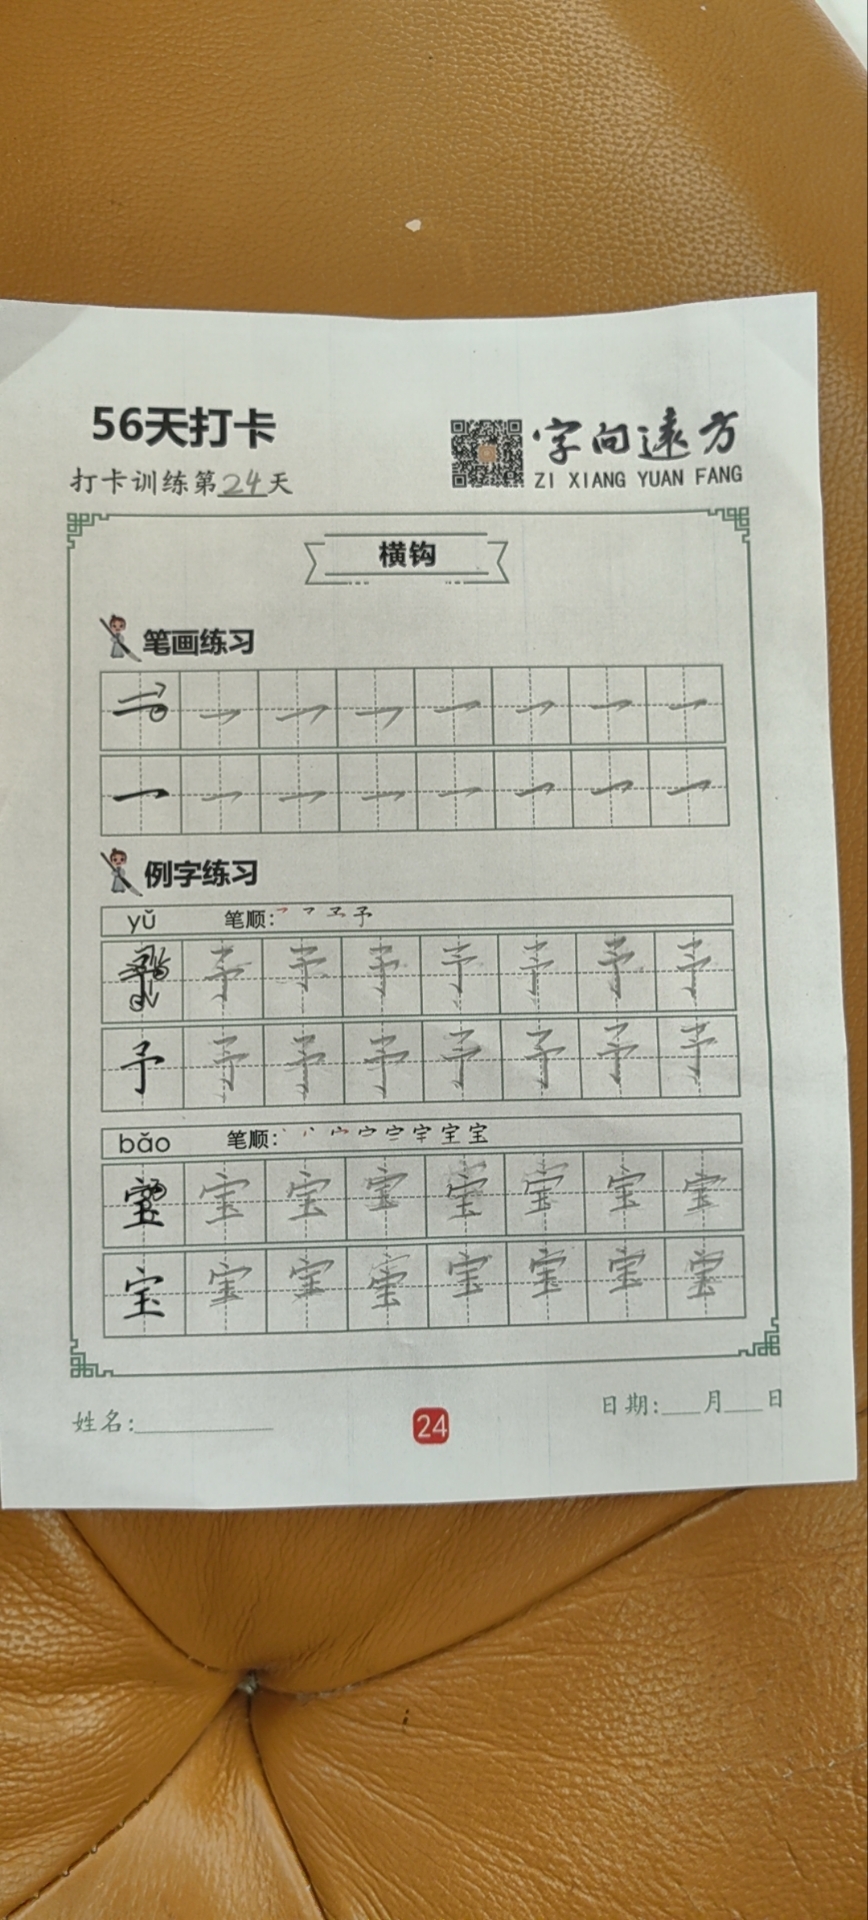 56天打卡
字向远方
打卡训练第24天
ZI XIANG YUAN FANG
横钩
笔画练习
例字练习
yǔ 笔顺:
予 予 予 予 予 予 予 予
予 予 予 予 予 予 予 予
bǎo 笔顺:
宝 宝 宝 宝 宝 宝 宝 宝
宝 宝 宝 宝 宝 宝 宝 宝
姓名:
24
日期:___月___日